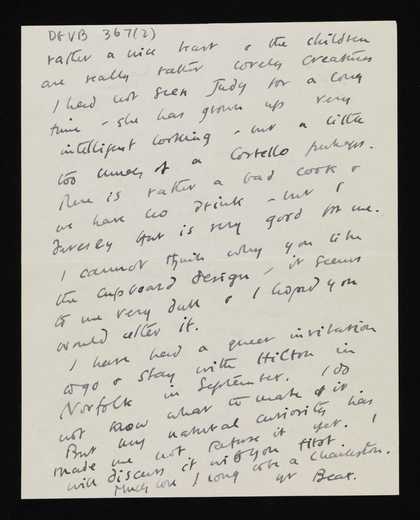 DFVB 367(2)
rather a nice heart & the children
are really rather lovely creatures
I had not seen Judy for a long
time - she has grown up very
intelligent looking - but a little
too much of a Costello perhaps.
There is rather a bad cook &
we have no drink - but I
daresay that is very good for me.
I cannot think why you like
the cupboard design - it seems
to me very dull & I hoped you
would alter it.
I have had a queer invitation
to go & stay with Hilton in
Norfolk in September. I do
not know what to make of it
But my natural curiosity has
made me not refuse it yet. I
will discuss it with you first.
Much love I long to be a Charleston.
yr Bear.